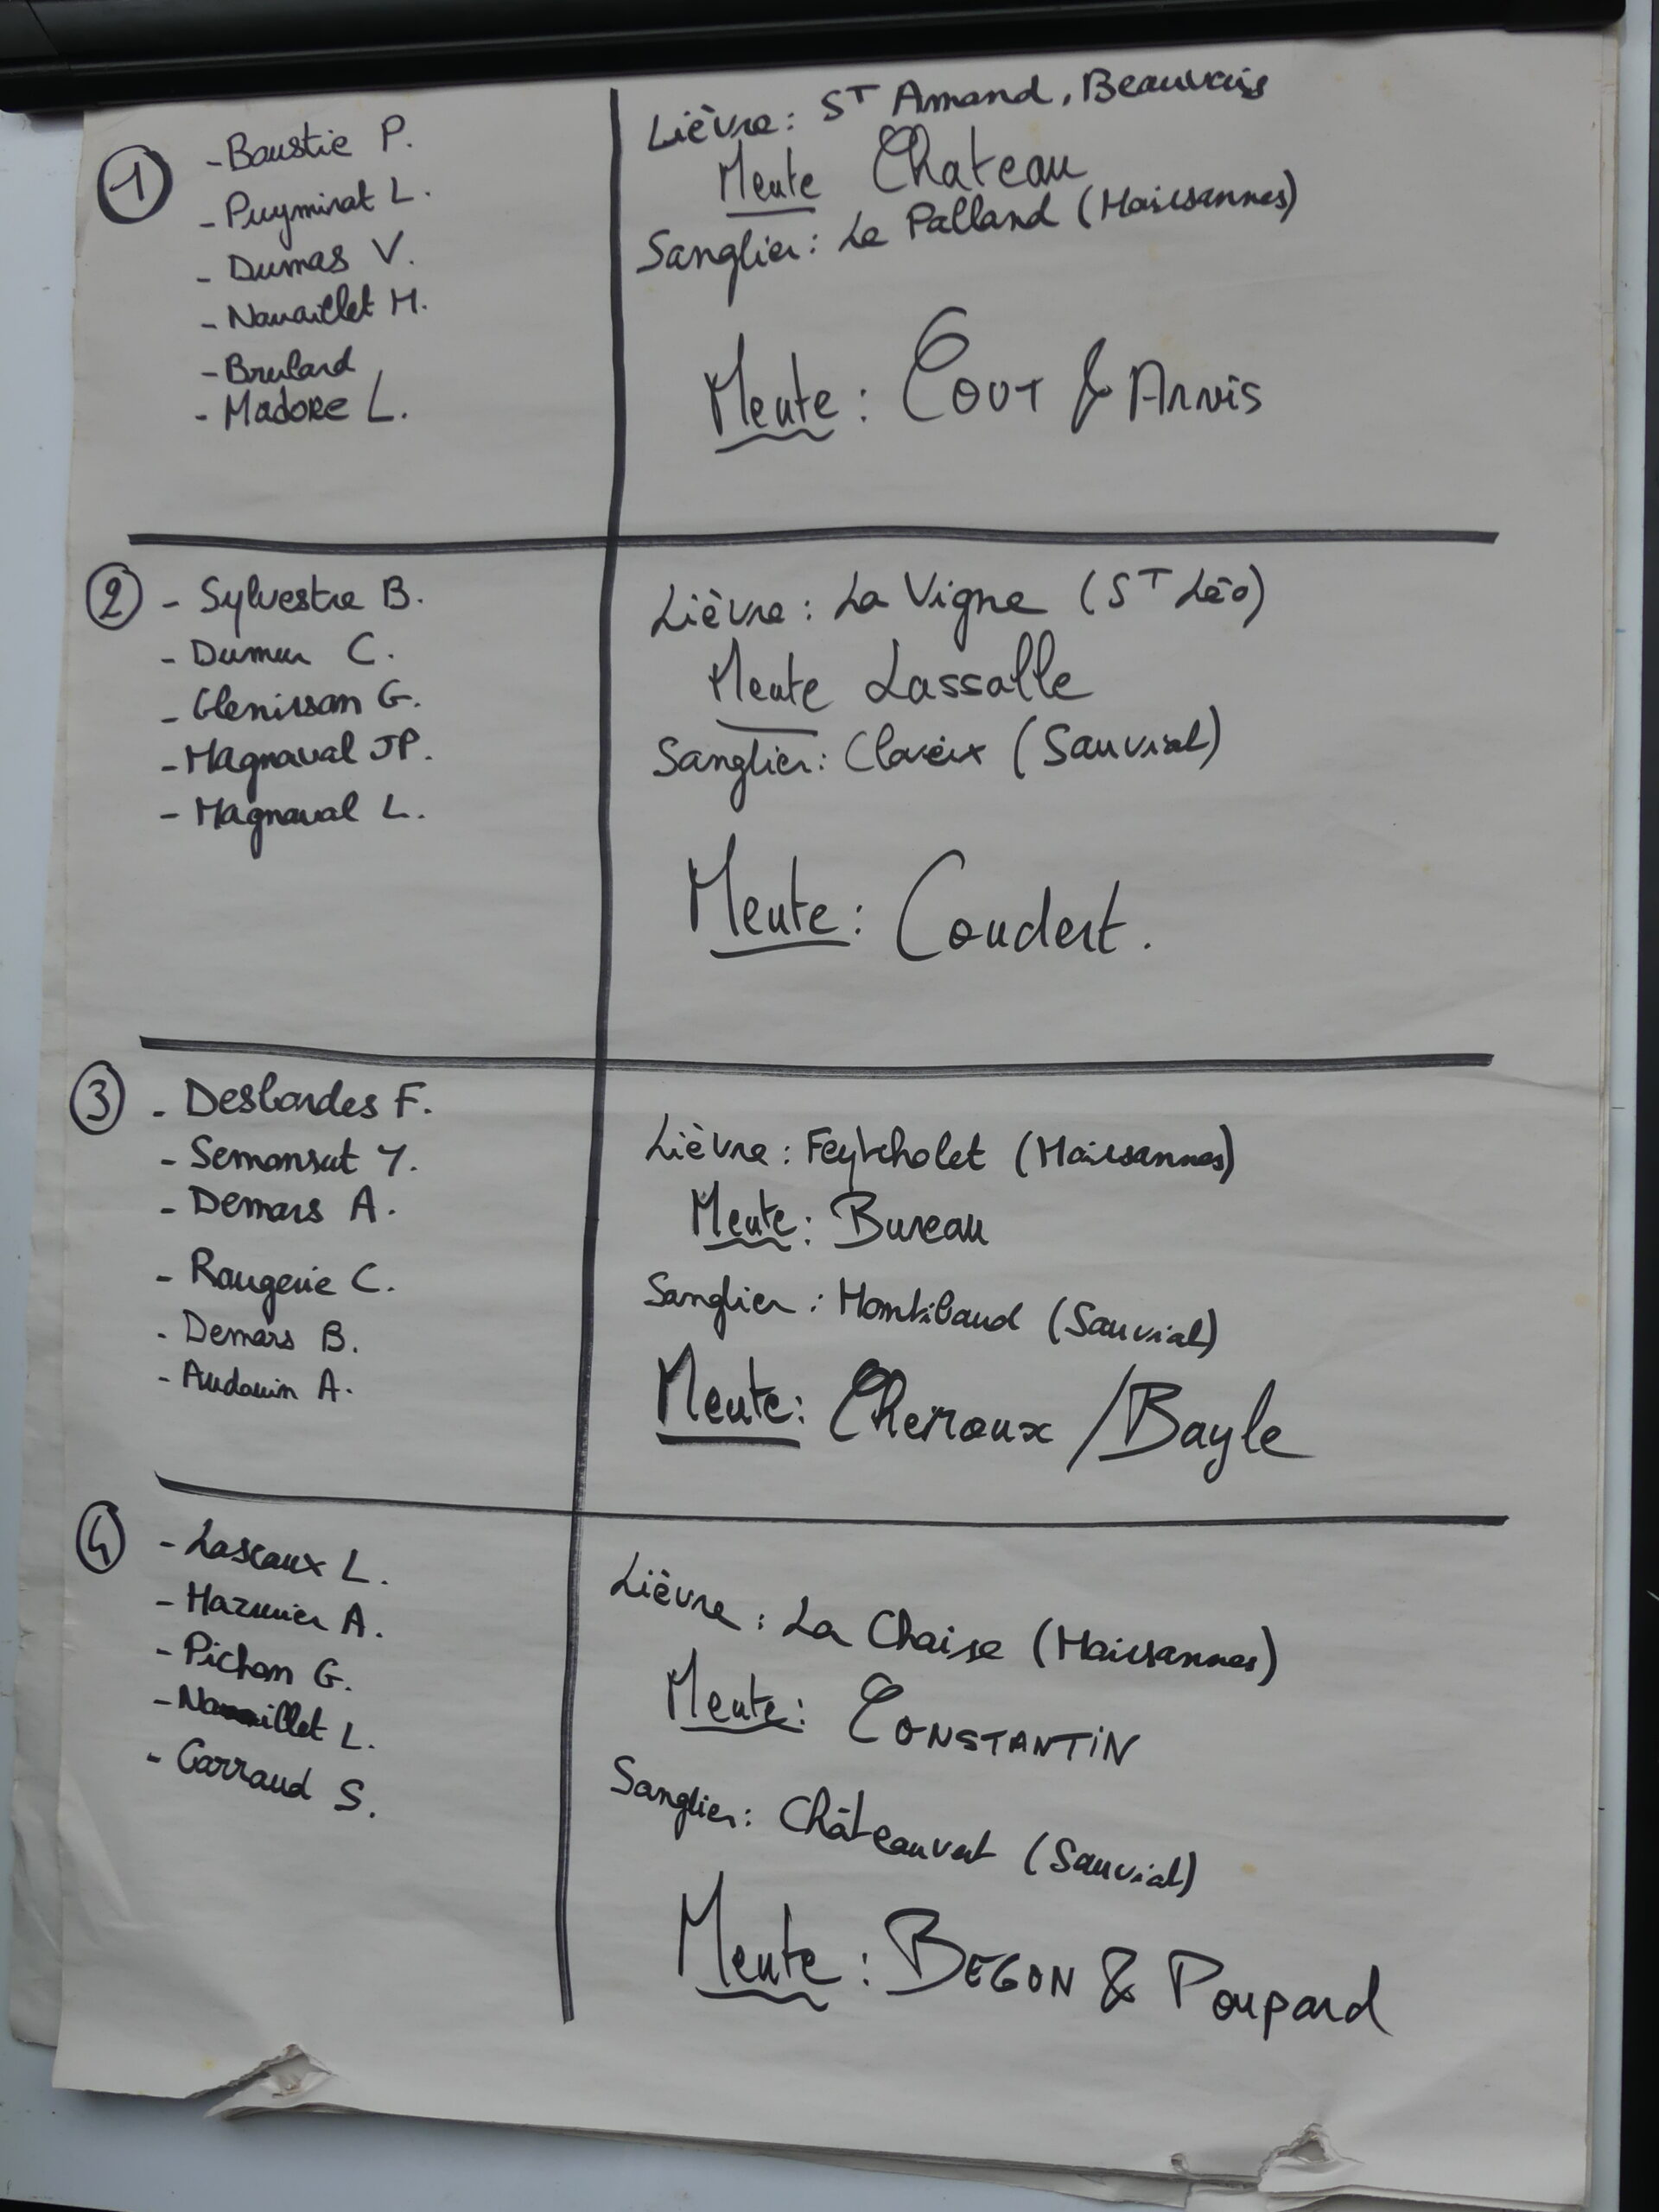 1
- Baustie P.
- Puyminat L.
- Dumas V.
- Navaillet M.
- Brulard
- Madore L.
Lièvre : St Amand, Beauvais
Meute Chateau
Sanglier : Le Palland (Maisannes)
Meute : Cout & Arvis
2
- Sylvestre B.
- Dumur C.
- Glenissan G.
- Magnaval JP.
- Magnaval L.
Lièvre : La Vigne (St Léo)
Meute Lassalle
Sanglier : Claveix (Sauviat)
Meute : Coudert.
3
- Desbordes F.
- Semonsut Y.
- Demars A.
- Rougerie C.
- Demars B.
- Audouin A.
Lièvre : Feytcholet (Maisannes)
Meute : Bureau
Sanglier : Montibaud (Sauviat)
Meute : Cheroux / Bayle
4
- Lascaux L.
- Mazurier A.
- Pichon G.
- Navaillet L.
- Carraud S.
Lièvre : La Chaise (Maisannes)
Meute : CONSTANTiN
Sanglier : Châteauvert (Sauviat)
Meute : BEGON & Poupard